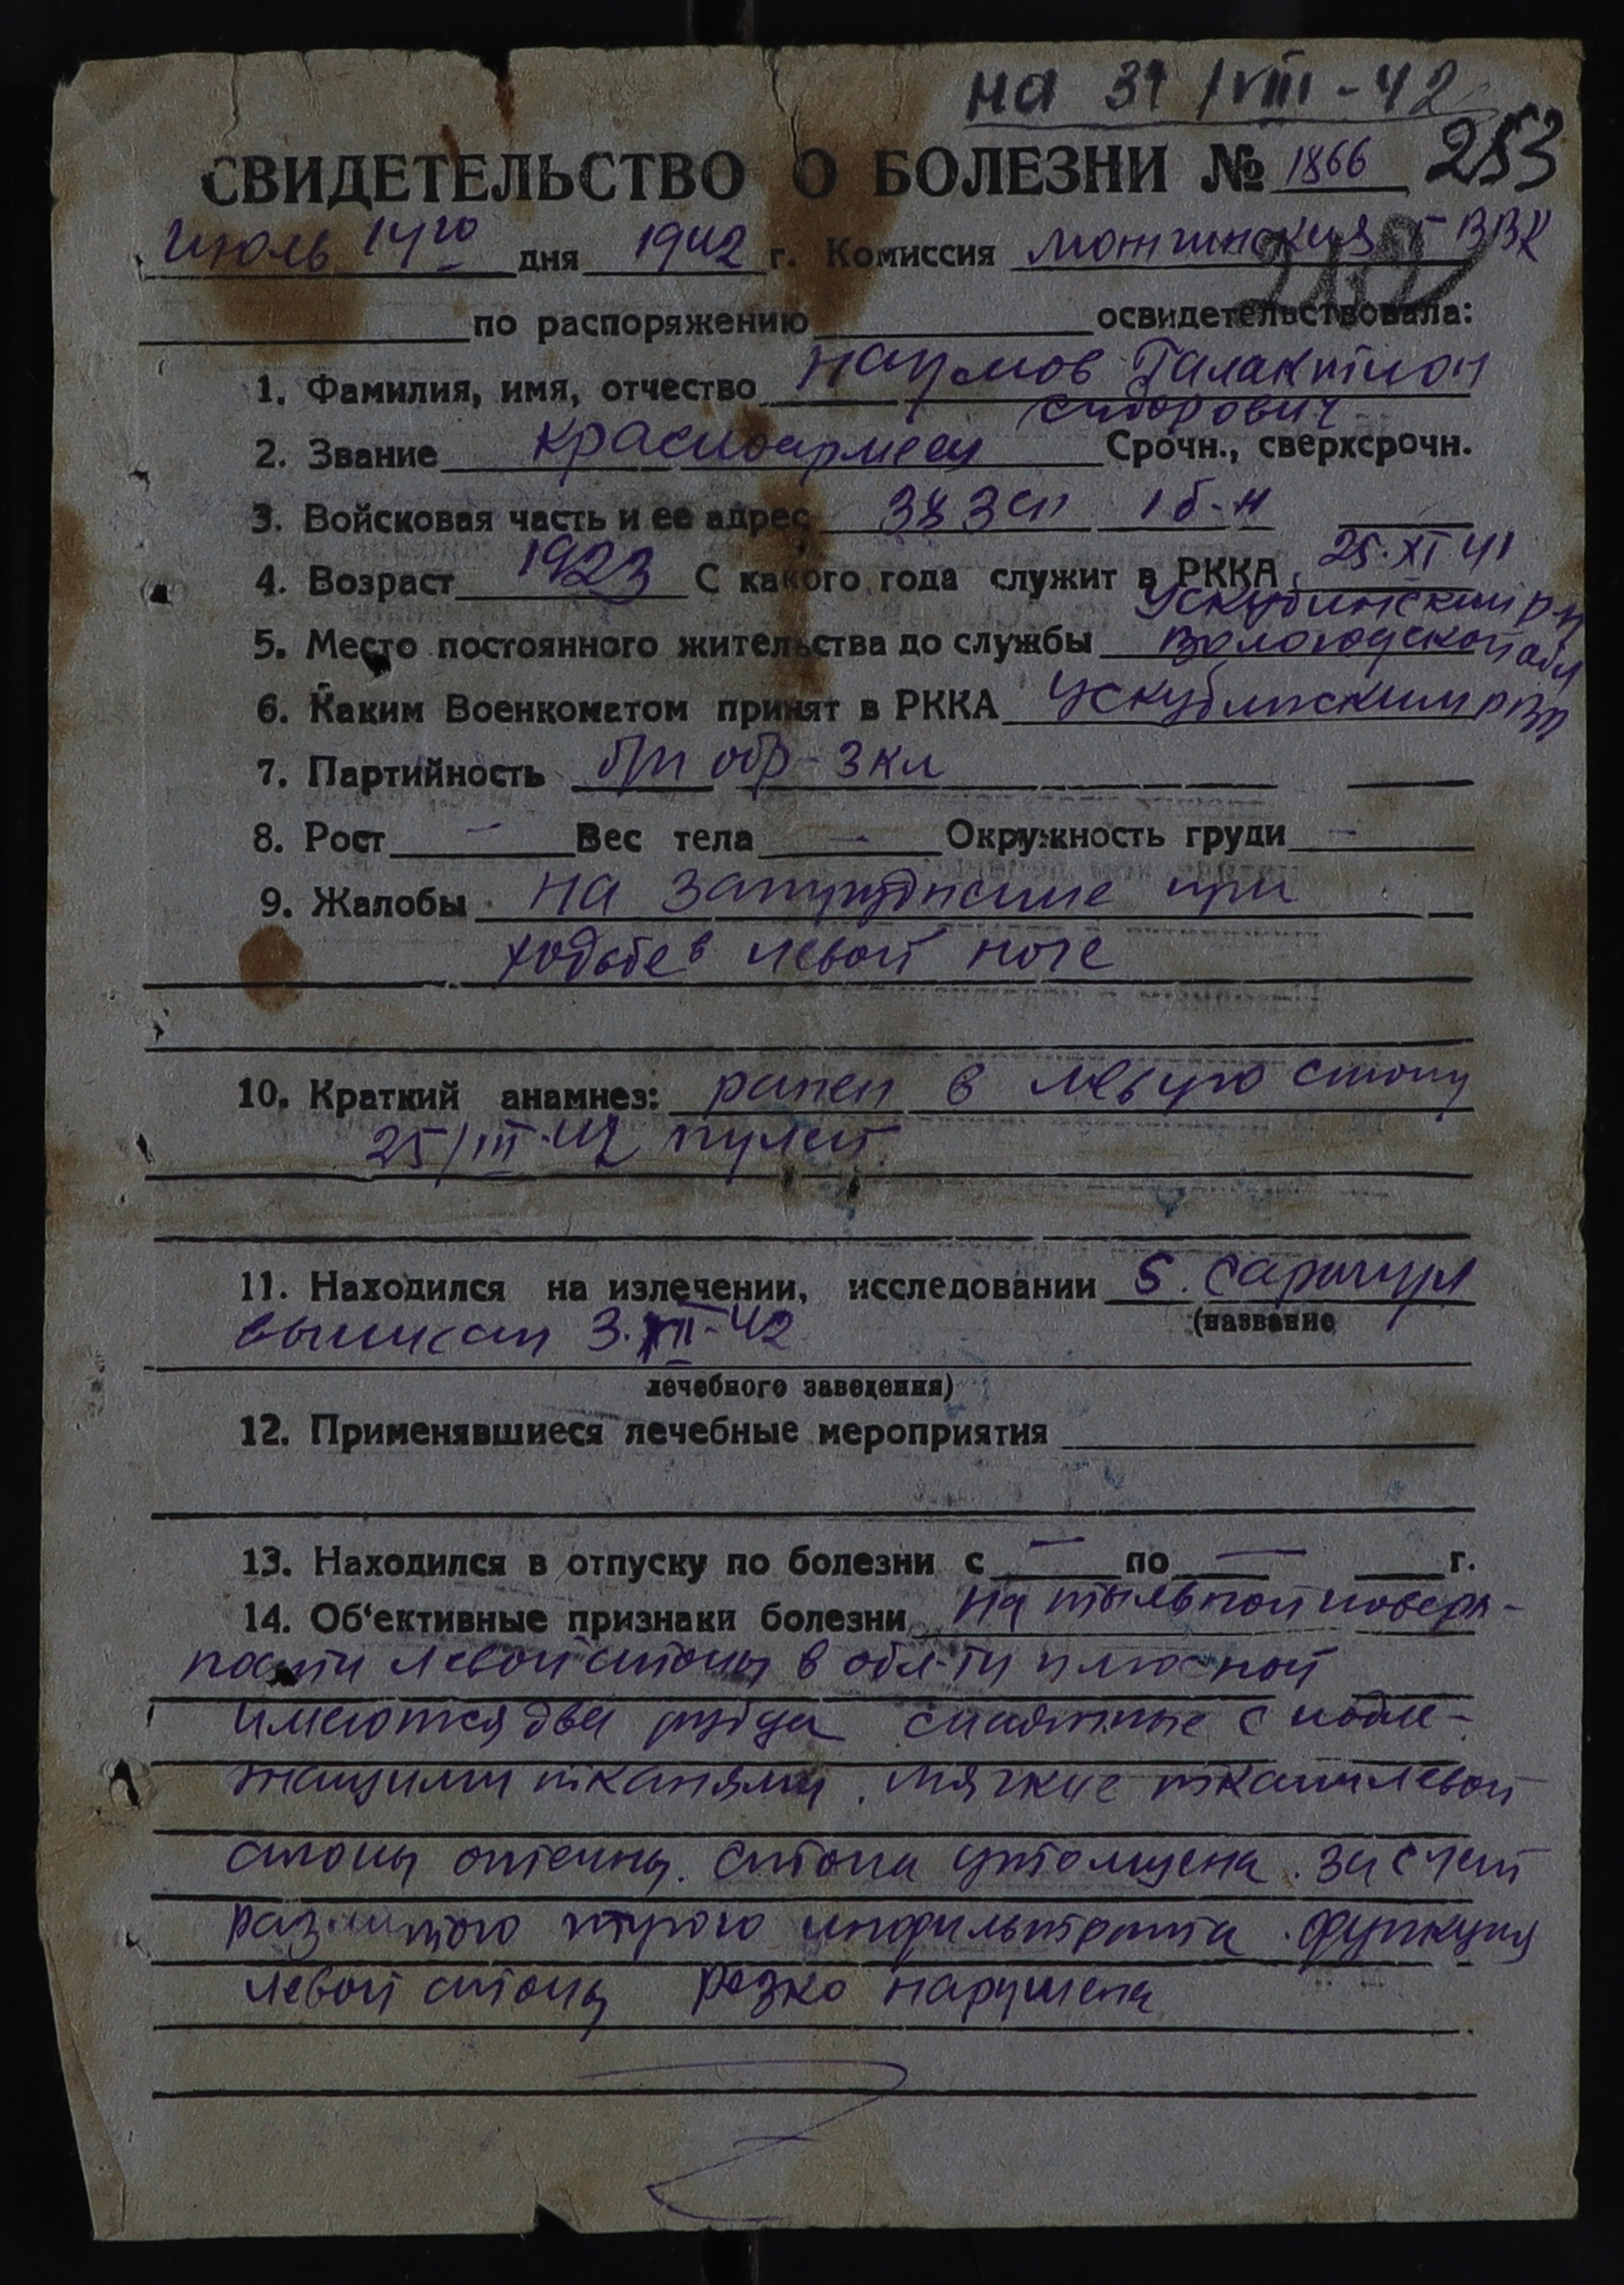 на 31/VIII-42
СВИДЕТЕЛЬСТВО О БОЛЕЗНИ № 1866 253
Июль 14го дня 1942 г. Комиссия Можгинская ГВВК
по распоряжению освидетельствовала:
1. Фамилия, имя, отчество Наумов Галактион
Сидорович
2. Звание красноармеец Срочн., сверхсрочн.
3. Войсковая часть и ее адрес 383 сп 1 б-н
4. Возраст 1923 С какого года служит в РККА 25.XI 41
Ускубинский р-н
5. Место постоянного жительства до службы Вологодской обл
6. Каким Военкоматом принят в РККА Ускубинским РВК
7. Партийность б/п обр - 3 кл
8. Рост - Вес тела - Окружность груди -
9. Жалобы на затруднение при
ходьбе в левой ноге
10. Краткий анамнез: ранен в левую стопу
25/III-42 пулей.
11. Находился на излечении, исследовании Сарапул
(название
выписан 3. -42
лечебного заведения)
12. Применявшиеся лечебные мероприятия
13. Находился в отпуску по болезни с — по — г.
14. Об'ективные признаки болезни на тыльной поверх-
ности левой стопы в обл-ти плюсной
имеются два рубца спаятные с подле-
жащими тканями. Мягкие ткани левой
стопы отечны. Стопа утолщена. за счет
инфильтрата. функция
левой стопы резко нарушена